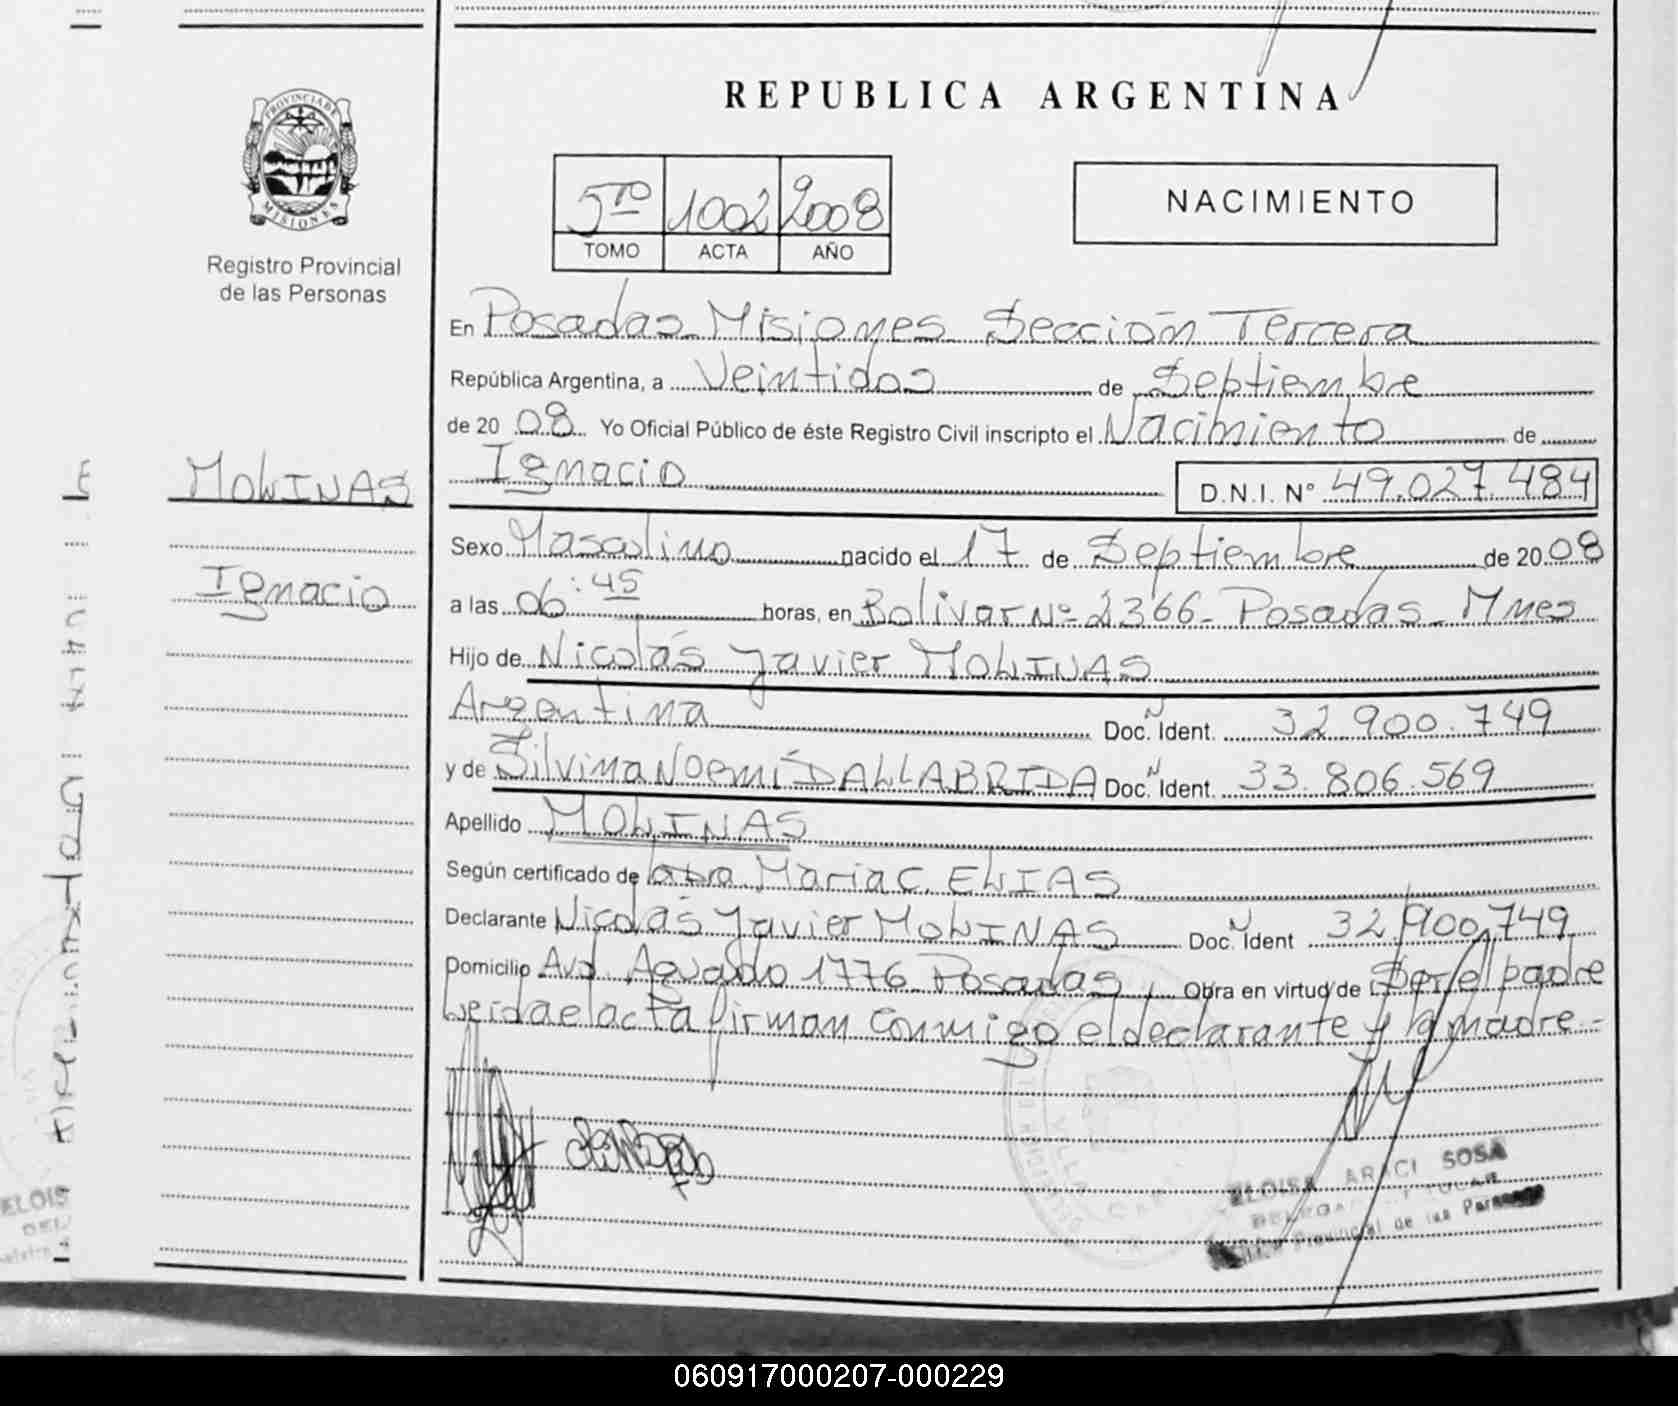 REPUBLICA ARGENTINA
PROVINCIA DE
MISIONES
Registro Provincial
de las Personas
5TO 1002 2008
TOMO ACTA AÑO
NACIMIENTO
En Posadas Misiones Sección Tercera
República Argentina, a Veintidos de Septiembre
de 20 08 Yo Oficial Público de éste Registro Civil inscripto el Nacimiento de
Ignacio D.N.I. Nº 49.027.484
MOLINAS
Ignacio
Sexo Masculino nacido el 17 de Septiembre de 20 08
a las 06:45 horas, en Bolivar Nº 2366- Posadas- Mnes
Hijo de Nicolás Javier MOLINAS
Argentina Doc. Ident. 32.900.749
y de Silvina Noemí DALLABRIDA Doc. Ident. 33.806.569
Apellido MOLINAS
Según certificado de Maria C. ELIAS
Declarante Nicolás Javier MOLINAS Doc. Ident 32.900.749
Domicilio Avd. Aguado 1776 Posadas Obra en virtud de Ser el padre
Leida el acta firman conmigo el declarante y la madre.-
ELOISA ARACI SOSA
Provincial de las Personas
060917000207-000229